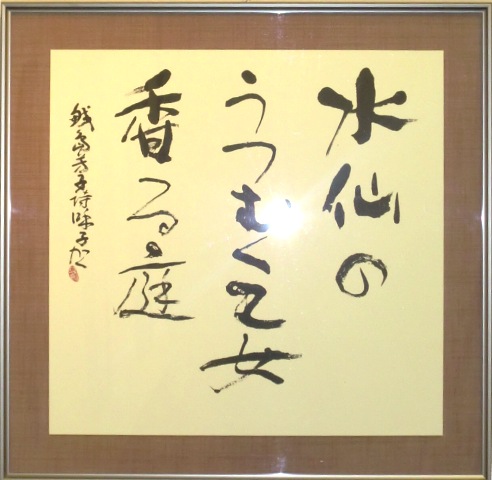 水仙の
うつむく乙女
香る庭